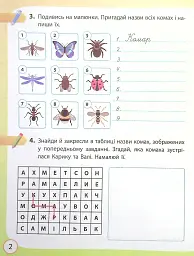 3. Подивись на малюнки. Пригадай назви осіх комах і на-
пиши їх.
1 2 3
4 5 6
7 8 9
1. Комар
2.
3.
4.
5.
6.
7.
8.
9.
4. Знайди й закресли в таблиці назви комах, зображених
у попередньому завданні. Згадай, яка комаха зустрі-
лася Карику та Валі. Намалюй її.
А Х М Е Т С О Н
Р А М А Е Л И Е
У К У Х П А К Ч
М О М А У В О К
О Д Ж І К Б А А
С А М І Л Ь Б К
2